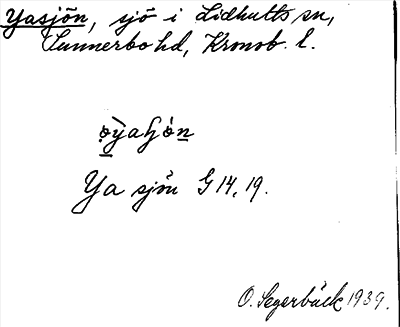 Yasjön, sjö i Lidhults sn,
Sunnerbo hd, Kronob. l.
Ya sjön G 14, 19.
O. Segerbäck 1939.